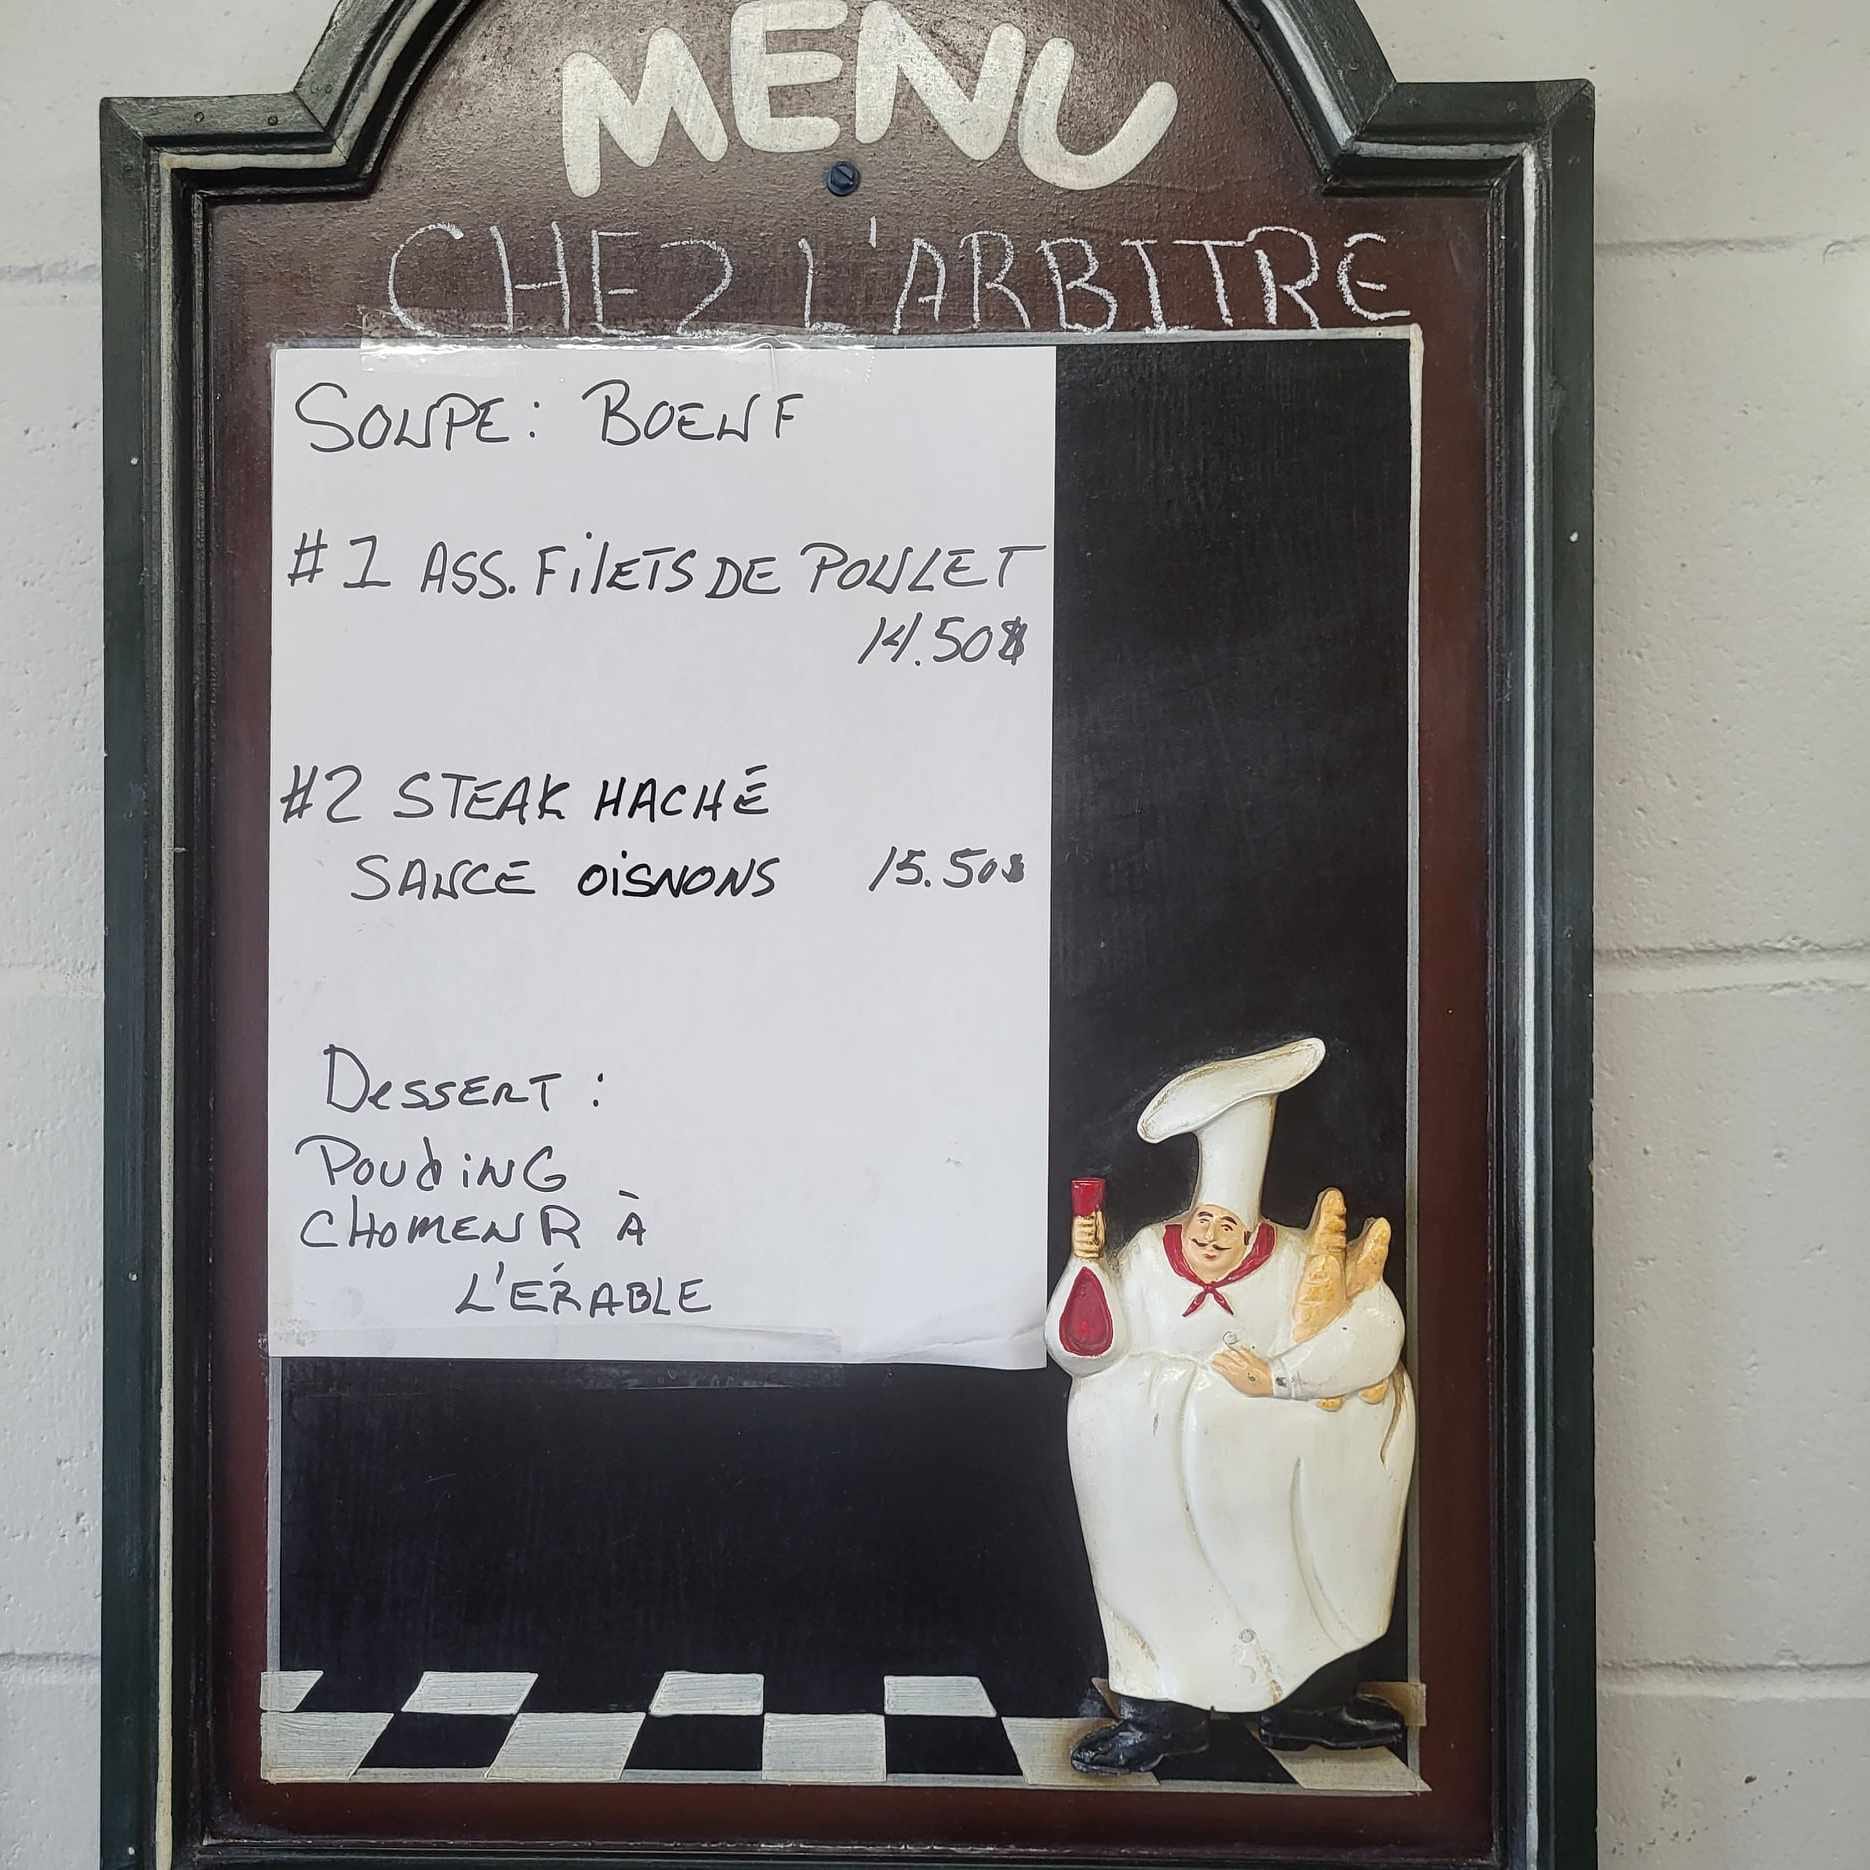 MENU
CHEZ L'ARBITRE
SOUPE: BOEUF
#1 ASS. FilETS DE POULET
14.50$
#2 STEAK HACHÉ
SAUCE OiGNONS 15.50$
DeSSERT:
POUdiNG
CHOMEUR À
L'ÉRABLE